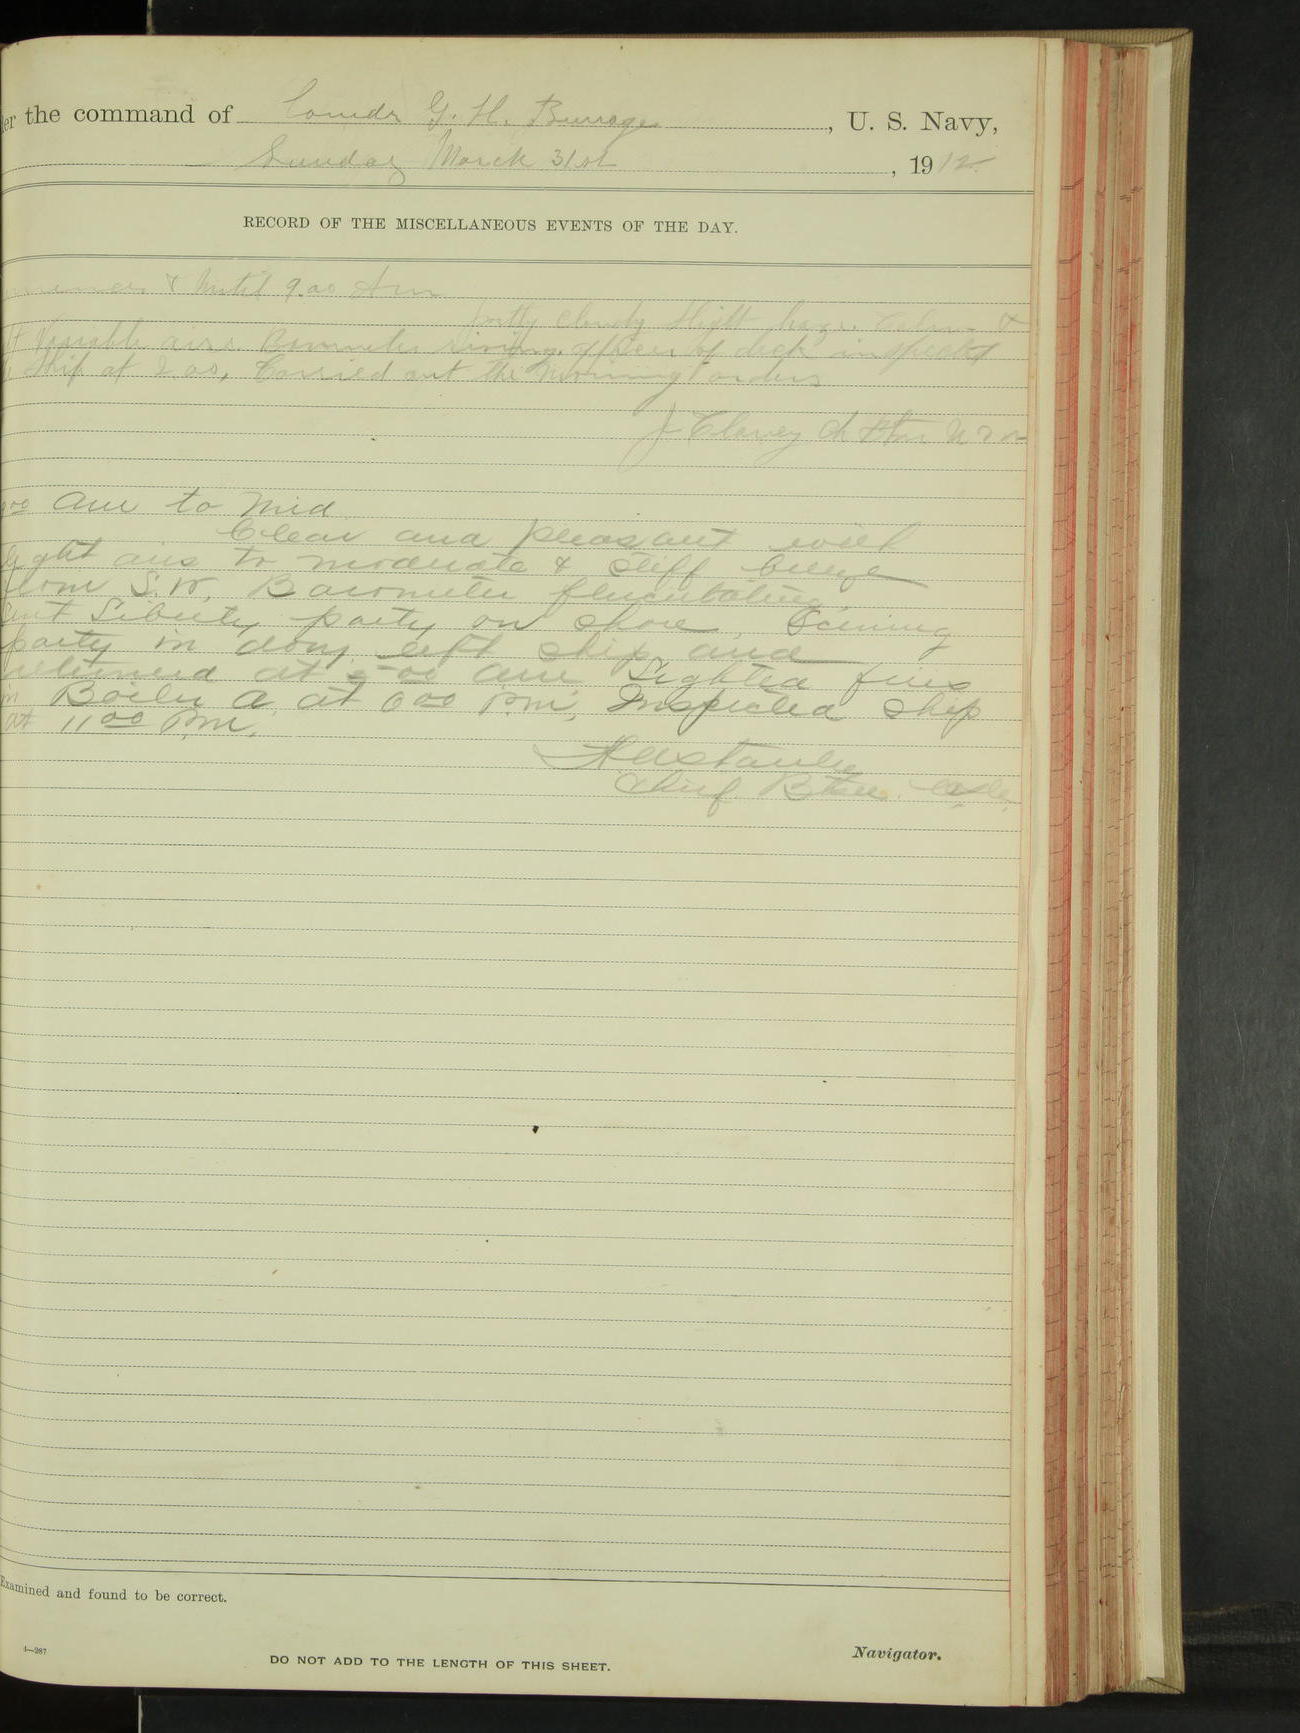 der the command of Comdr G. H. Burrage, U. S. Navy,
Sunday March 31st, 1912
RECORD OF THE MISCELLANEOUS EVENTS OF THE DAY.
& Until 9.00 Am
partly cloudy slight haze. Calm &
Lt Variable airs. Barometer rising. officer of deck inspected
Ship at 2.00, Carried out the Morning orders
J Clancy Ch Btsn U S N
9 00 am to Mid
Clear and pleasant with
light airs to moderate & stiff breeze
from S.W. Barometer fluctuating
Sent Liberty party on shore,
party in dory left ship and
returned at 5 00 am Lighted fires
in Boiler A at 6 00 P.m., Inspected ship
at 11 00 P.m.
Chief Btsn
Examined and found to be correct.
4—287
DO NOT ADD TO THE LENGTH OF THIS SHEET.
Navigator.